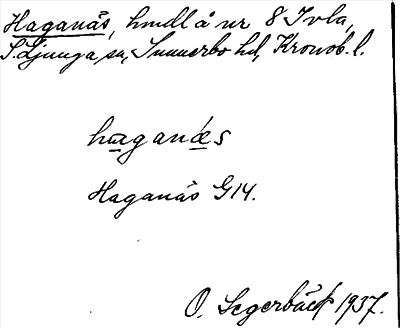 Haganäs, hmdl å nr 8 Ivla,
S. Ljunga sn, Sunnerbo hd, Kronob. l.
haganæs
Haganäs G14.
O. Segerbäck 1937.